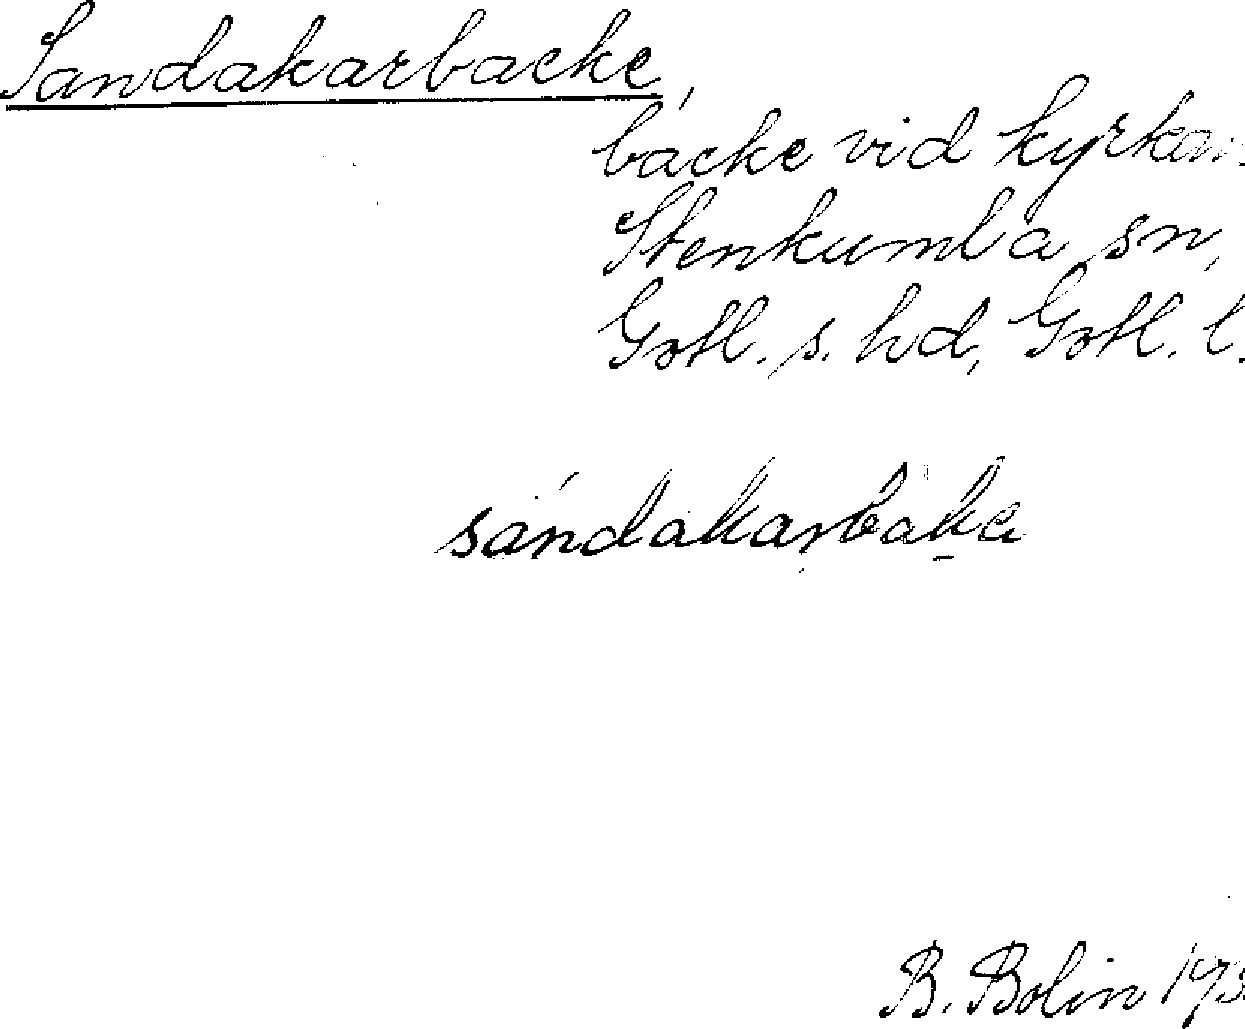 Sandakarbacke,
backe vid kyrkan.
Stenkumla sn,
Gotl. s. hd, Gotl. l.
sándakarbaka
B. Bolin